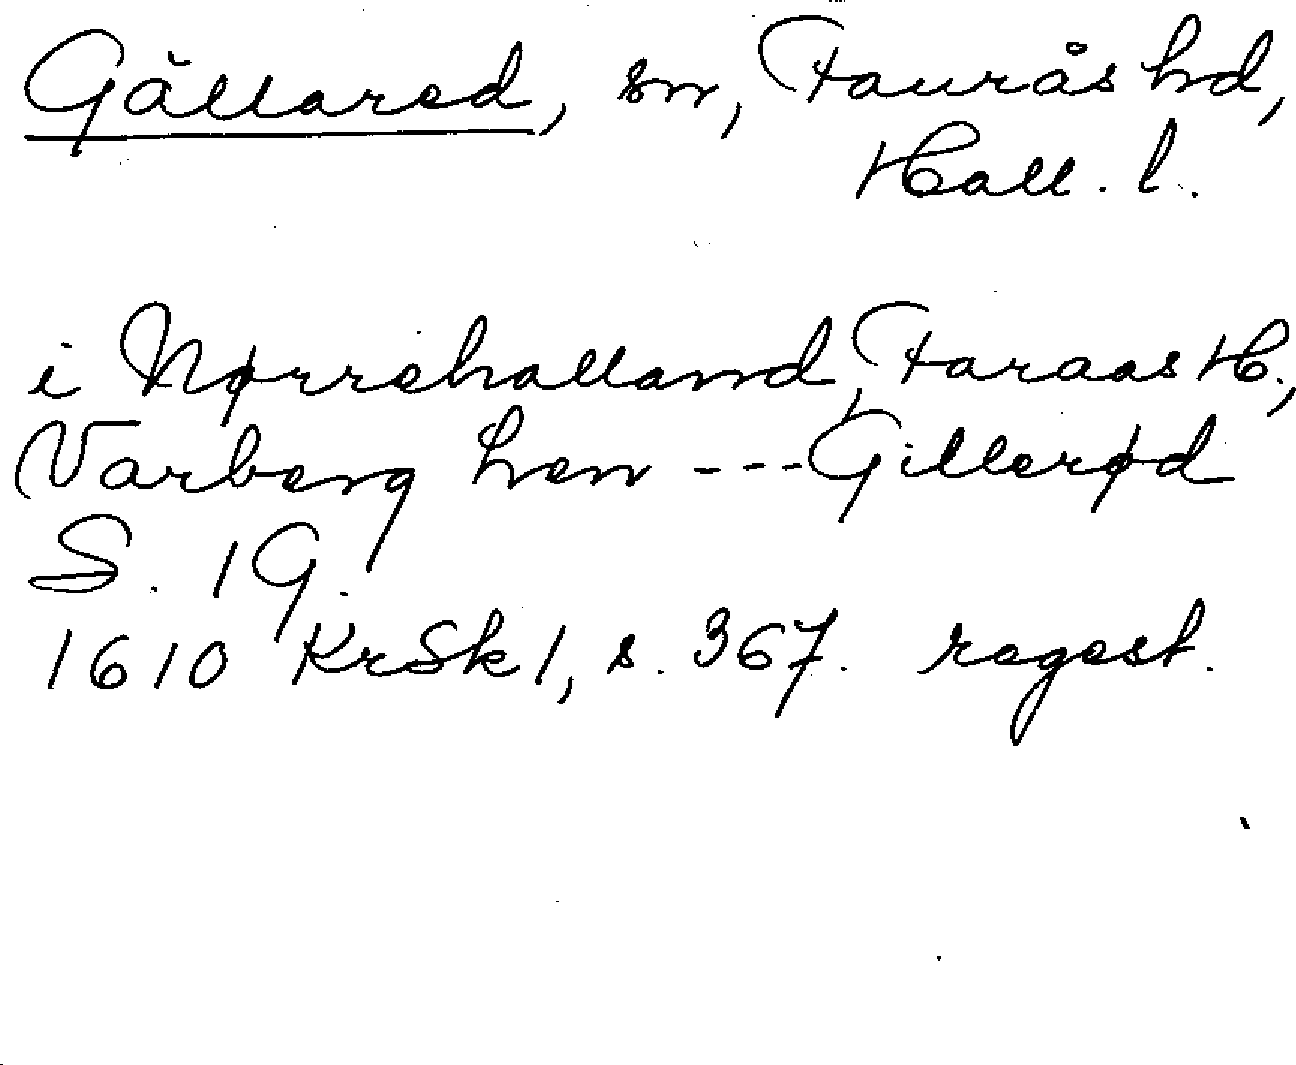 Gällared, sn, Faurås hd,
Hall. l.
i Nørrehalland, Faraas H.,
Varberg Len --- Gillerød
S. 1 G.
1610 KrSk 1, s. 367. regest.